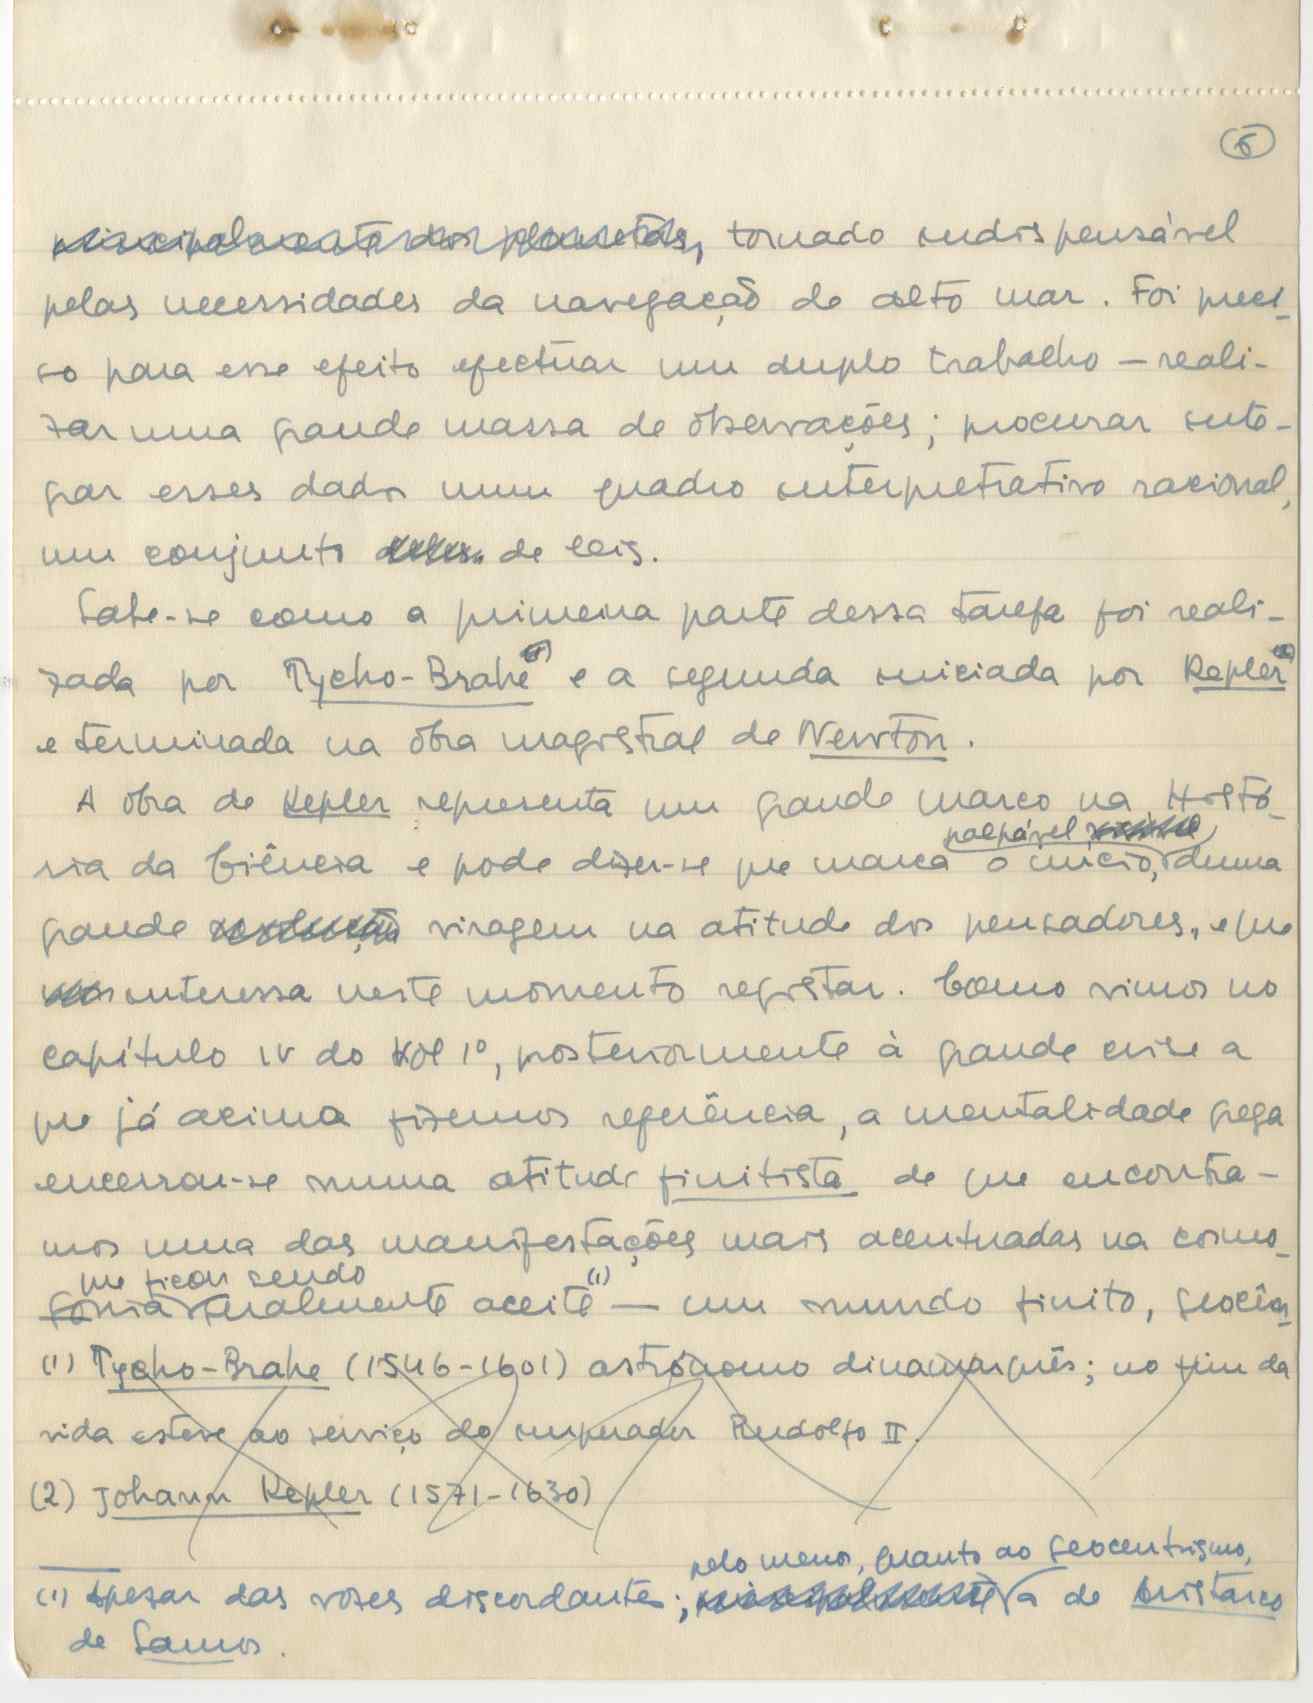 5
principalmente dos planetas, tornado indispensável
pelas necessidades da navegação de alto mar. Foi preci-
so para esse efeito efectuar um duplo trabalho — reali-
zar uma grande massa de observações; procurar inte-
grar esses dados num quadro interpretativo racional,
um conjunto de leis.
Sabe-se como a primeira parte dessa tarefa foi reali-
zada por Tycho-Brahe e a segunda iniciada por Kepler
e terminada na obra magistral de Newton.
A obra de Kepler representa um grande marco na Histó-
palpável
ria da Ciência e pode dizer-se que marca o início, duma
grande viragem na atitude dos pensadores, e que
interessa neste momento registar. Como vimos no
capítulo IV do Vol 1º, posteriormente à grande crise a
que já acima fizemos referência, a mentalidade grega
encerrou-se numa atitude finitista de que encontra-
mos uma das manifestações mais acentuadas na cosmo-
que ficou sendo
gonia geralmente aceite (1) — um mundo finito, geocên-
(1) Tycho-Brahe (1546-1601) astrónomo dinamarquês; no fim da
vida esteve ao serviço do imperador Rudolfo II.
(2) Johann Kepler (1571-1630)
pelo menos, quanto ao geocentrismo,
(1) Apesar das vozes discordantes; a de Aristarco
de Samos.